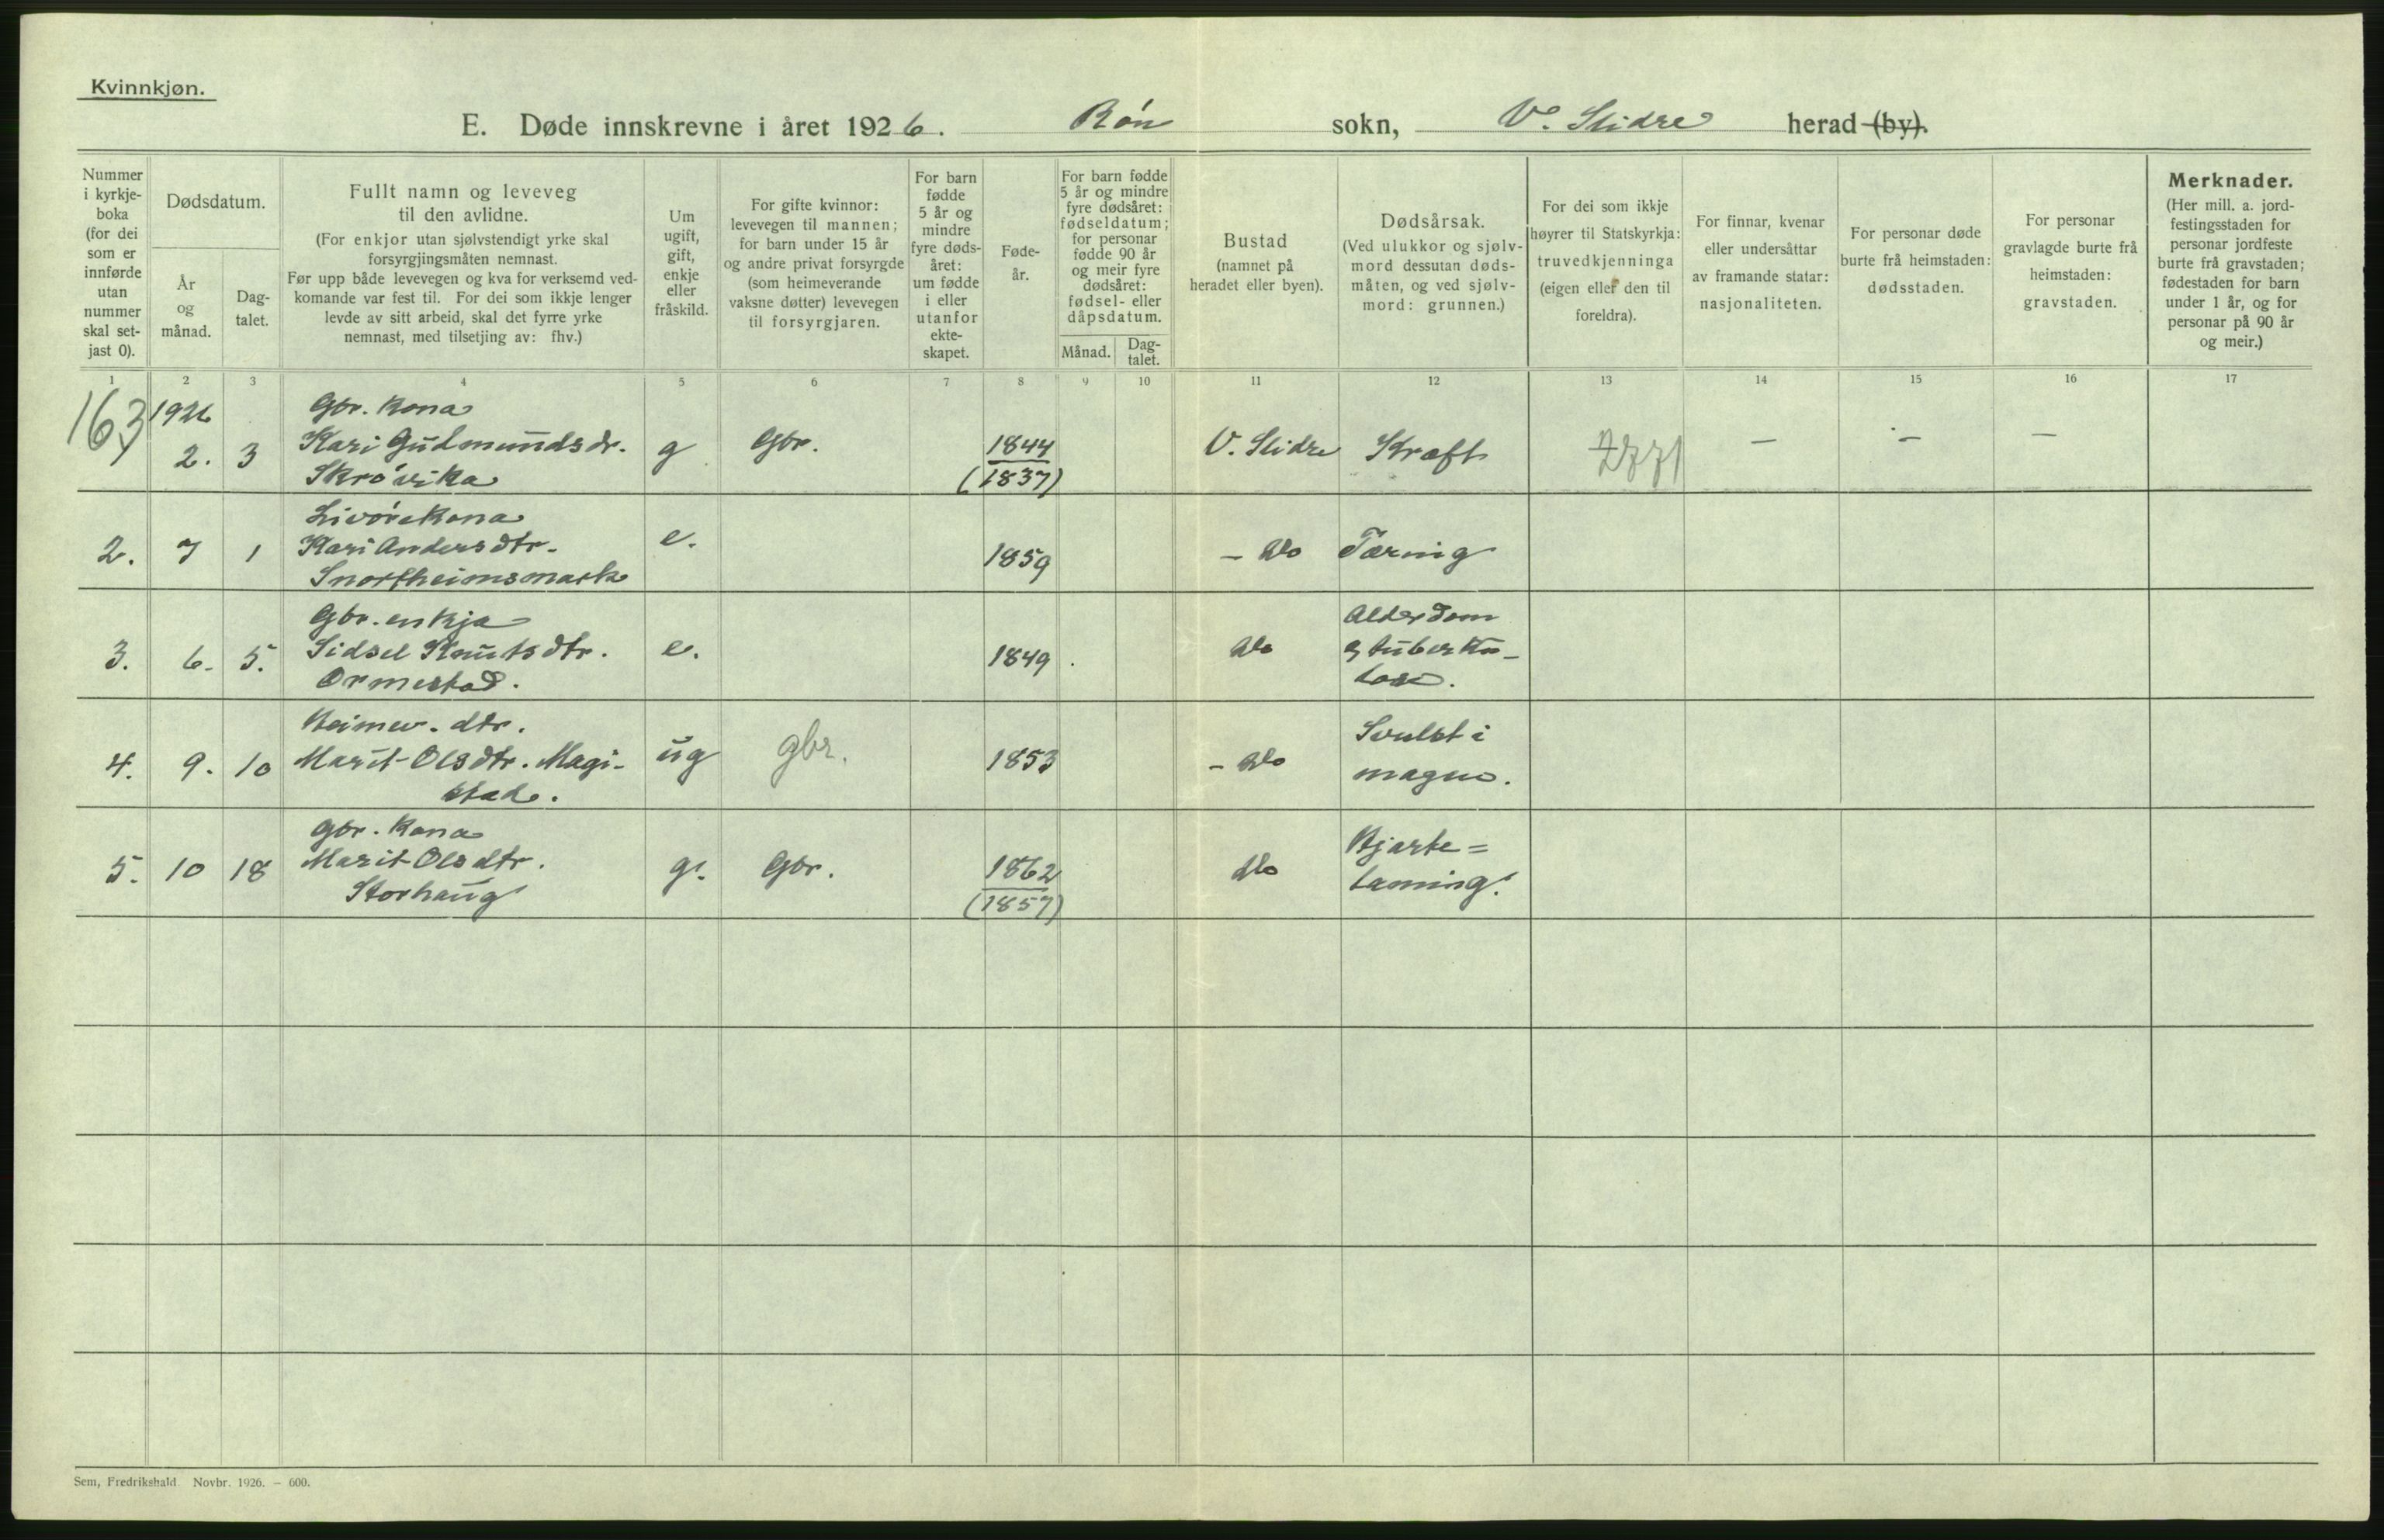 Kvinnkjøn.
E. Døde innskrevne i året 1926. Røn sokn, V. Slidre herad (by).
Nummer
i kyrkje-
boka
(for dei
som er
innførde
utan
nummer
skal set-
jast 0).
Dødsdatum.
År
og
månad.
Dag-
talet.
Fullt namn og leveveg
til den avlidne.
(For enkjor utan sjølvstendigt yrke skal
forsyrgjingsmåten nemnast.
Før upp både levevegen og kva for verksemd ved-
komande var fest til. For dei som ikkje lenger
levde av sitt arbeid, skal det fyrre yrke
nemnast, med tilsetjing av: fhv.)
Um
ugift,
gift,
enkje
eller
fråskild.
For gifte kvinnor:
levevegen til mannen;
for barn under 15 år
og andre privat forsyrgde
(som heimeverande
vaksne døtter) levevegen
til forsyrgjaren.
For barn
fødde
5 år og
mindre
fyre døds-
året:
um fødde
i eller
utanfor
ekte-
skapet.
Føde-
år.
For barn fødde
5 år og mindre
fyre dødsåret:
fødseldatum;
for personar
fødde 90 år
og meir fyre
dødsåret:
fødsel- eller
dåpsdatum.
Månad.
Dag-
talet.
Bustad
(namnet på
heradet eller byen).
Dødsårsak.
(Ved ulukkor og sjølv-
mord dessutan døds-
måten, og ved sjølv-
mord: grunnen.)
For dei som ikkje
høyrer til Statskyrkja:
truvedkjenninga
(eigen eller den til
foreldra).
For finnar, kvenar
eller undersåttar
av framande statar:
nasjonaliteten.
For personar døde
burte frå heimstaden:
dødsstaden.
For personar
gravlagde burte frå
heimstaden:
gravstaden.
Merknader.
(Her mill. a. jord-
festingsstaden for
personar jordfeste
burte frå gravstaden;
fødestaden for barn
under 1 år, og for
personar på 90 år
og meir.)
1 2 3 4 5 6 7 8 9 10 11 12 13 14 15 16 17
163 1926 Gbr. kona
2. 3 Kari Gudmundsdr. g Gbr. 1844 V. Slidre Kræft — — —
Skrøvika (1837)
Livørekona
2. 7 1 Kari Andersdtr. e. 1859 - do Tæring
Snortheimsmark
Gbr. enkja Alderdom
3. 6. 5. Sidsel Knutsdtr. e. 1849 do & tuberku-
Ormestad. lose.
Heimev. dtr. Svulst i
4. 9. 10 Marit Olsdtr. Magi- ug gbr. 1853 - do magen.
stad.
Gbr. kona Hjarte=
5. 10 18 Marit Olsdtr. g. Gbr. 1862 do laming.
Storhaug (1857)
Sem, Fredrikshald. Novbr. 1926. — 600.